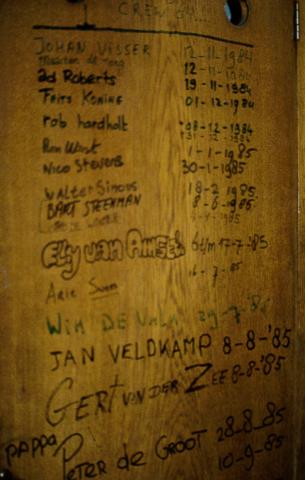 CREW
JOHAN VISSER 12-11-1984
Maarten de Jong 12-11-1984
ad Roberts 19-11-1984
Frits Koning 01-12-1984
rob hardholt 08-12-1984
31-12-1984
Ron West 1-1-1985
Nico Stevens 30-1-1985
WALTER Simons 18-2-1985
BART STEENMAN 8-6-1985
ELLY van Amsel 6t/m 17-7-'85
Arie 16-7-85
WIM DE 29-7-'85
JAN VELDKAMP 8-8-'85
GERT VAN DER ZEE 8-8-'85
PAPPA Peter de GROOT 28-8-85
10-9-85